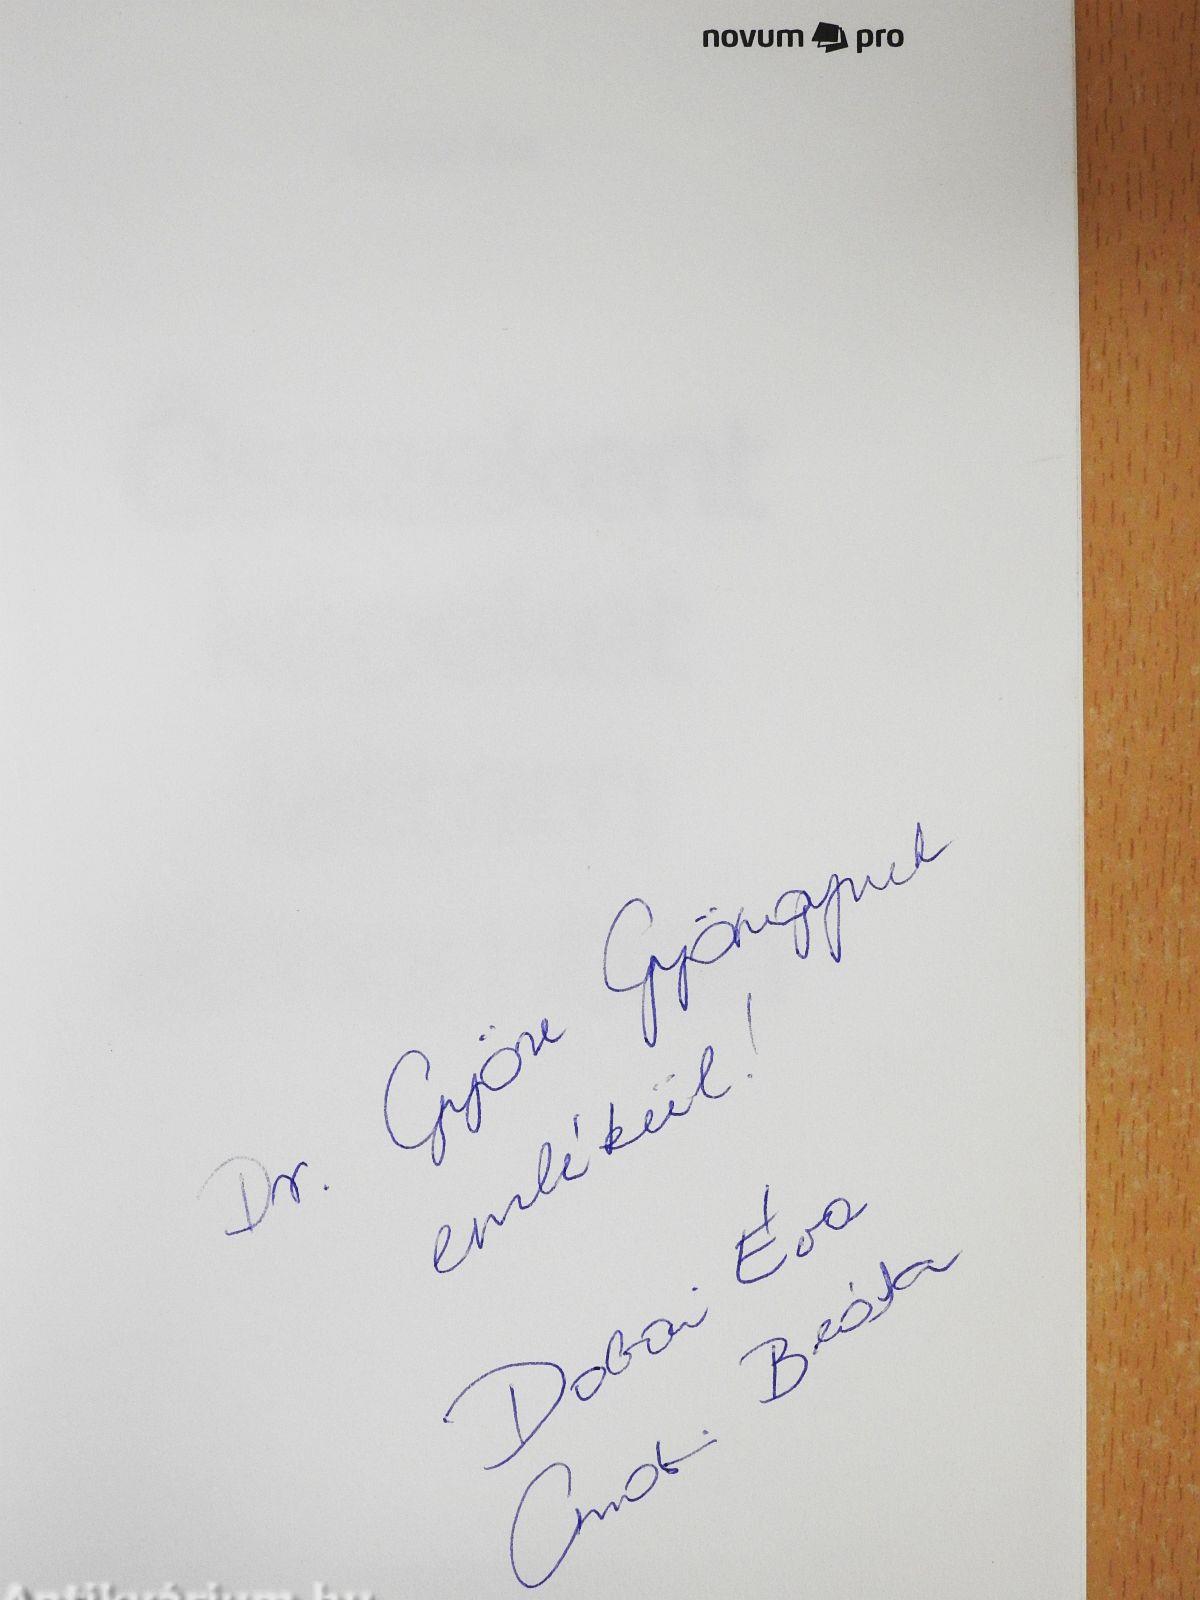 novum pro
Dr. Győre Gyöngyinek
emlékül!
Dobai Éva
Beáta
Antikvárium.hu